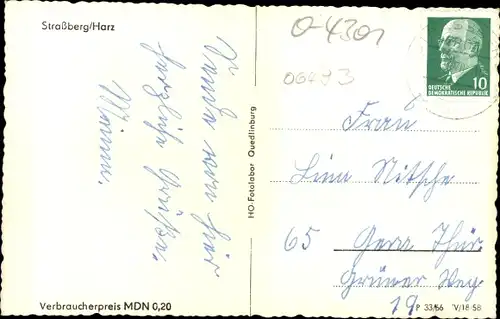 Straßberg/Harz
Verbraucherpreis MDN 0,20
HO-Fotolabor Quedlinburg
O-4301
06493
10
DEUTSCHE
DEMOKRATISCHE REPUBLIK
von hier
herzliche Grüße.
Frau
Lina Nitsche
65 Gera Thür.
Grüner Weg
19
P 33/66 V/18-58